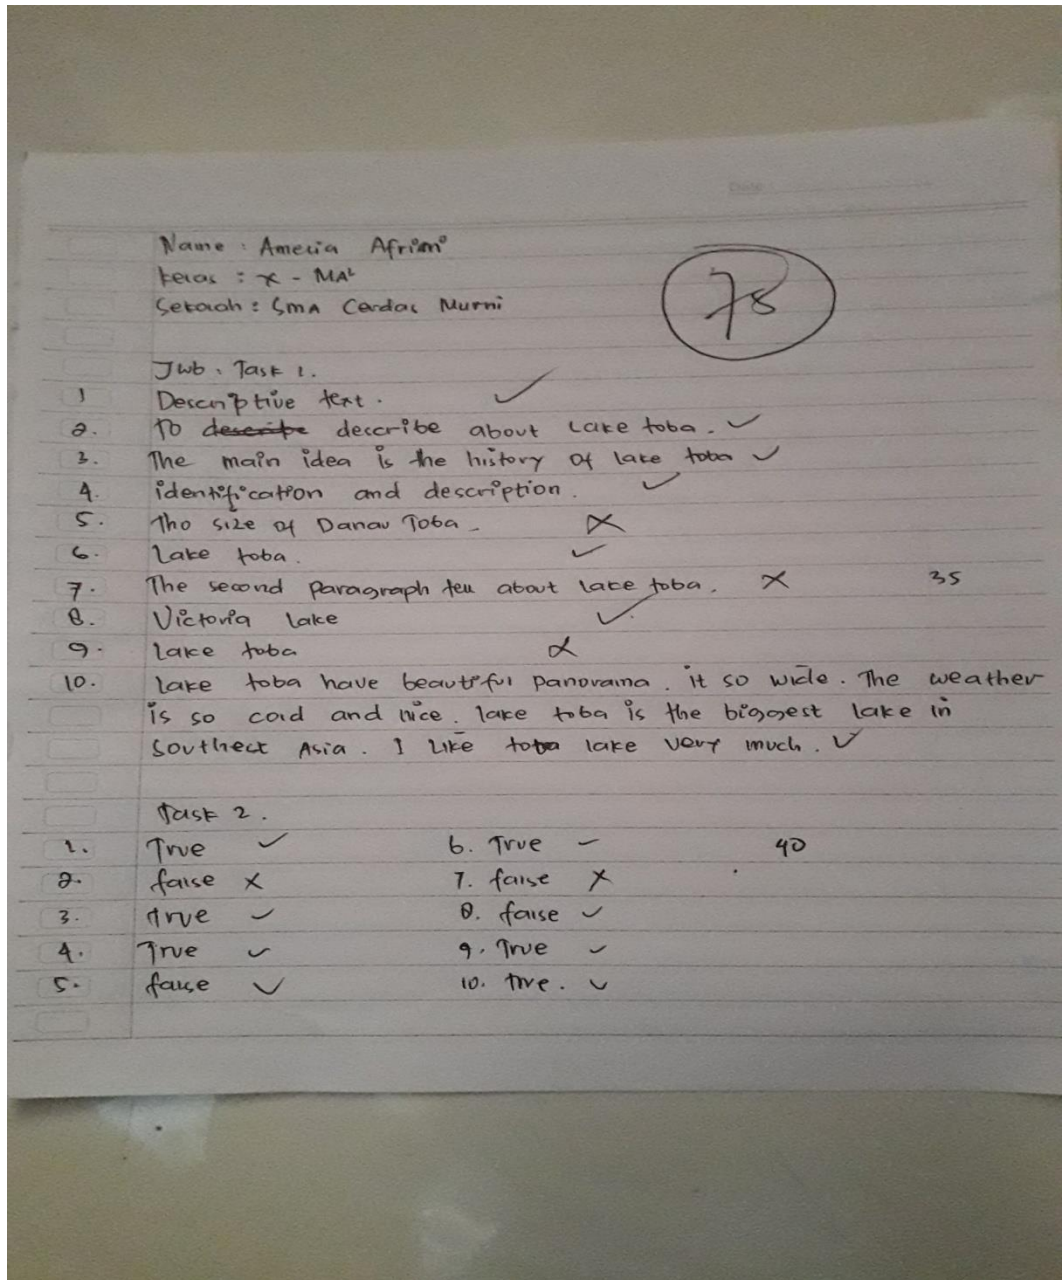 Date :
Name : Amelia Afriani
Kelas : X - MA²
Sekolah : SMA Cerdas Murni
78
Jwb : Task 1.
1 Descriptive text.
2. To describe describe about Lake toba.
3. The main idea is the history of lake toba
4. identification and description.
5. Tho size of Danau Toba
6. Lake toba.
7. The second paragraph tell about lake toba. 35
8. Victoria lake
9. Lake toba
10. lake toba have beautiful panorama. it so wide. The weather
is so cold and nice. lake toba is the biggest lake in
southect Asia. I Like toba lake very much.
Task 2.
1. True 6. True 40
2. false 7. false
3. true 8. false
4. True 9. True
5. false 10. true.